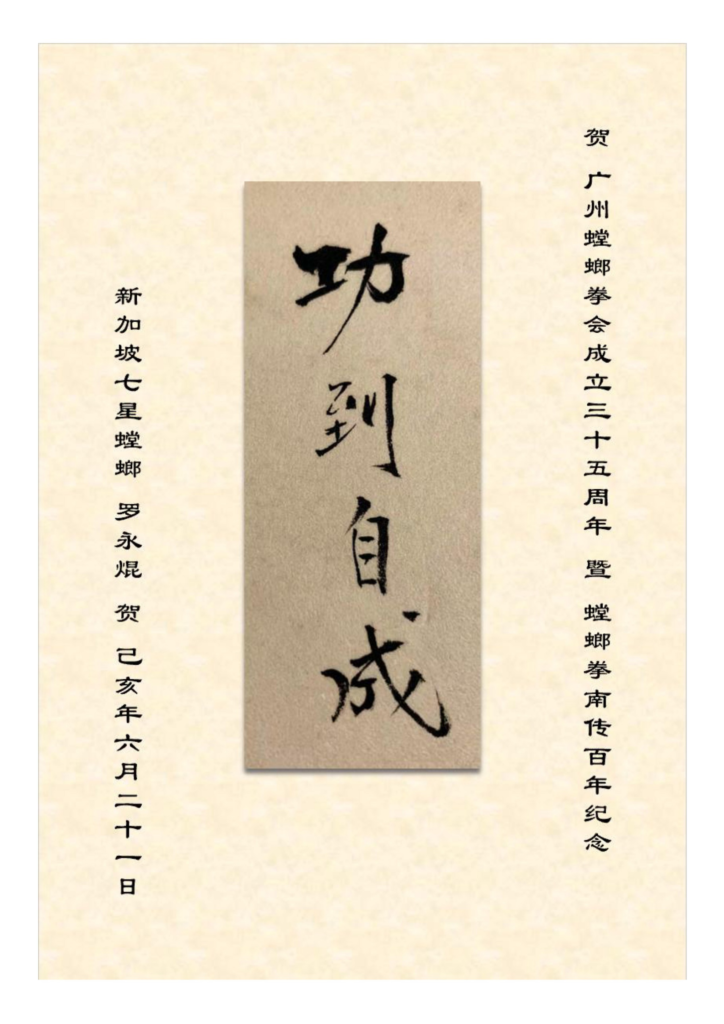 贺 广州螳螂拳会成立三十五周年 暨 螳螂拳南传百年纪念
功到自成
新加坡七星螳螂 罗永焜 贺 己亥年六月二十一日